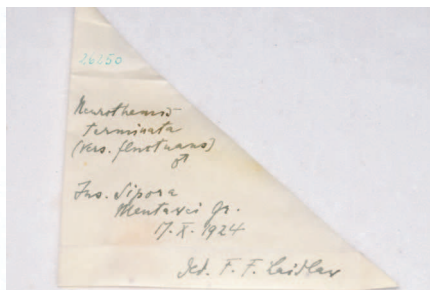 26250
Neurothemis
terminata
(vers. fluctuans)
♂
Ins. Sipora
Mentawei Gr.
17. X. 1924
det. F. F. Laidlaw